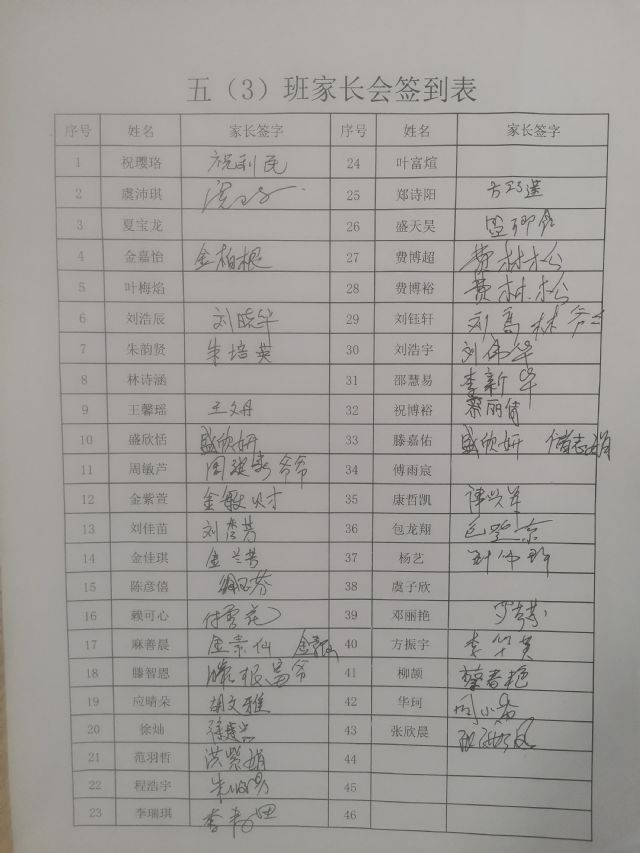 五（3）班家长会签到表
序号 姓名 家长签字 序号 姓名 家长签字
1 祝璎珞 祝利民 24 叶富煊
2 虞沛琪 25 郑诗阳
3 夏宝龙 26 盛天昊
4 金嘉怡 金柏根 27 费博超 费林松
5 叶梅焰 28 费博裕 费林松
6 刘浩辰 刘晓华 29 刘钰轩 刘高林爷爷
7 朱韵贤 朱培英 30 刘浩宇 刘伟华
8 林诗涵 31 邵慧易 李新华
9 王馨瑶 王文丹 32 祝博裕 蔡丽倩
10 盛欣恬 盛欣妍 33 滕嘉佑 盛欣妍
11 周敏芦 爷爷 34 傅雨宸
12 金紫萱 金敏财 35 康哲凯
13 刘佳苗 36 包龙翔
14 金佳琪 金兰芳 37 杨艺
15 陈彦僖 38 虞子欣
16 赖可心 付雪花 39 邓丽艳
17 麻善晨 金素仙 40 方振宇 李竹英
18 滕智恩 41 柳颉 蔡春艳
19 应晴朵 胡文雅 42 华珂
20 徐灿 43 张欣晨
21 范羽哲 洪紫娟 44
22 程浩宇 45
23 李瑞琪 46